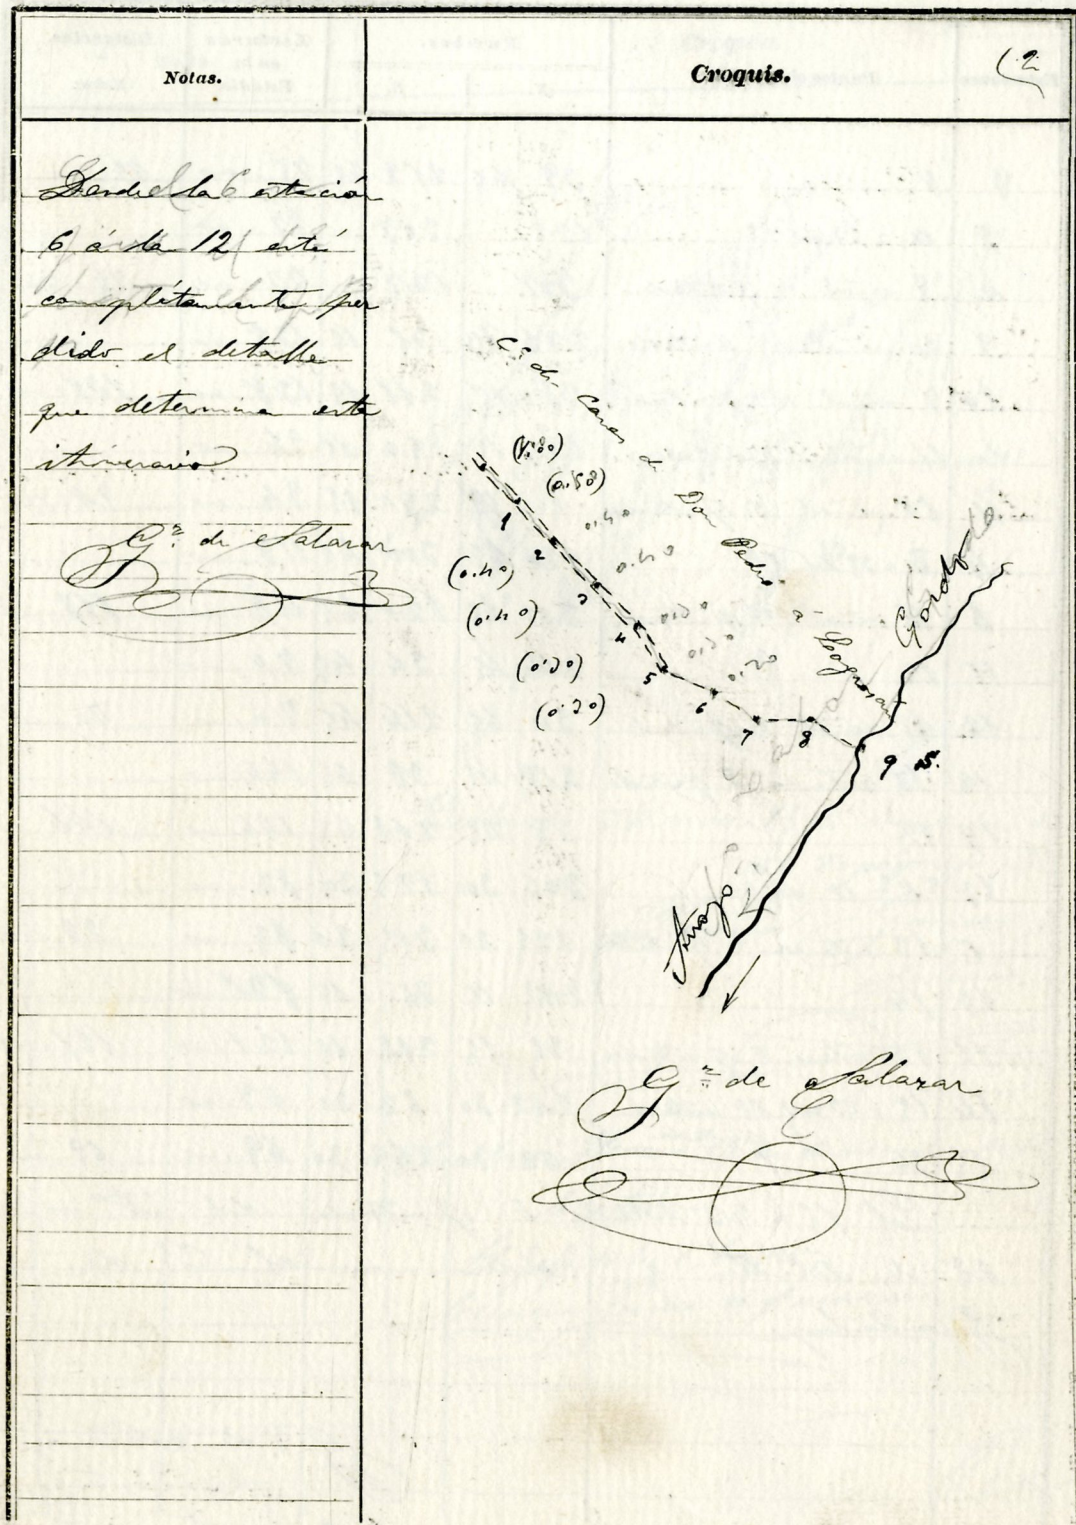 Notas.
Croquis.
(2
Desde la estación
6 á la 12 está
complétamente per
dido el detalle
que determina este
itinerario
G.ª de Salazar
C.º de Casas de Don Pedro á Logrosán
(0.40)
(0.40)
(0.20)
(0.20)
1
2
3
4
5
6
7
8
9
Arroyo
Gordo
G.ª de Salazar